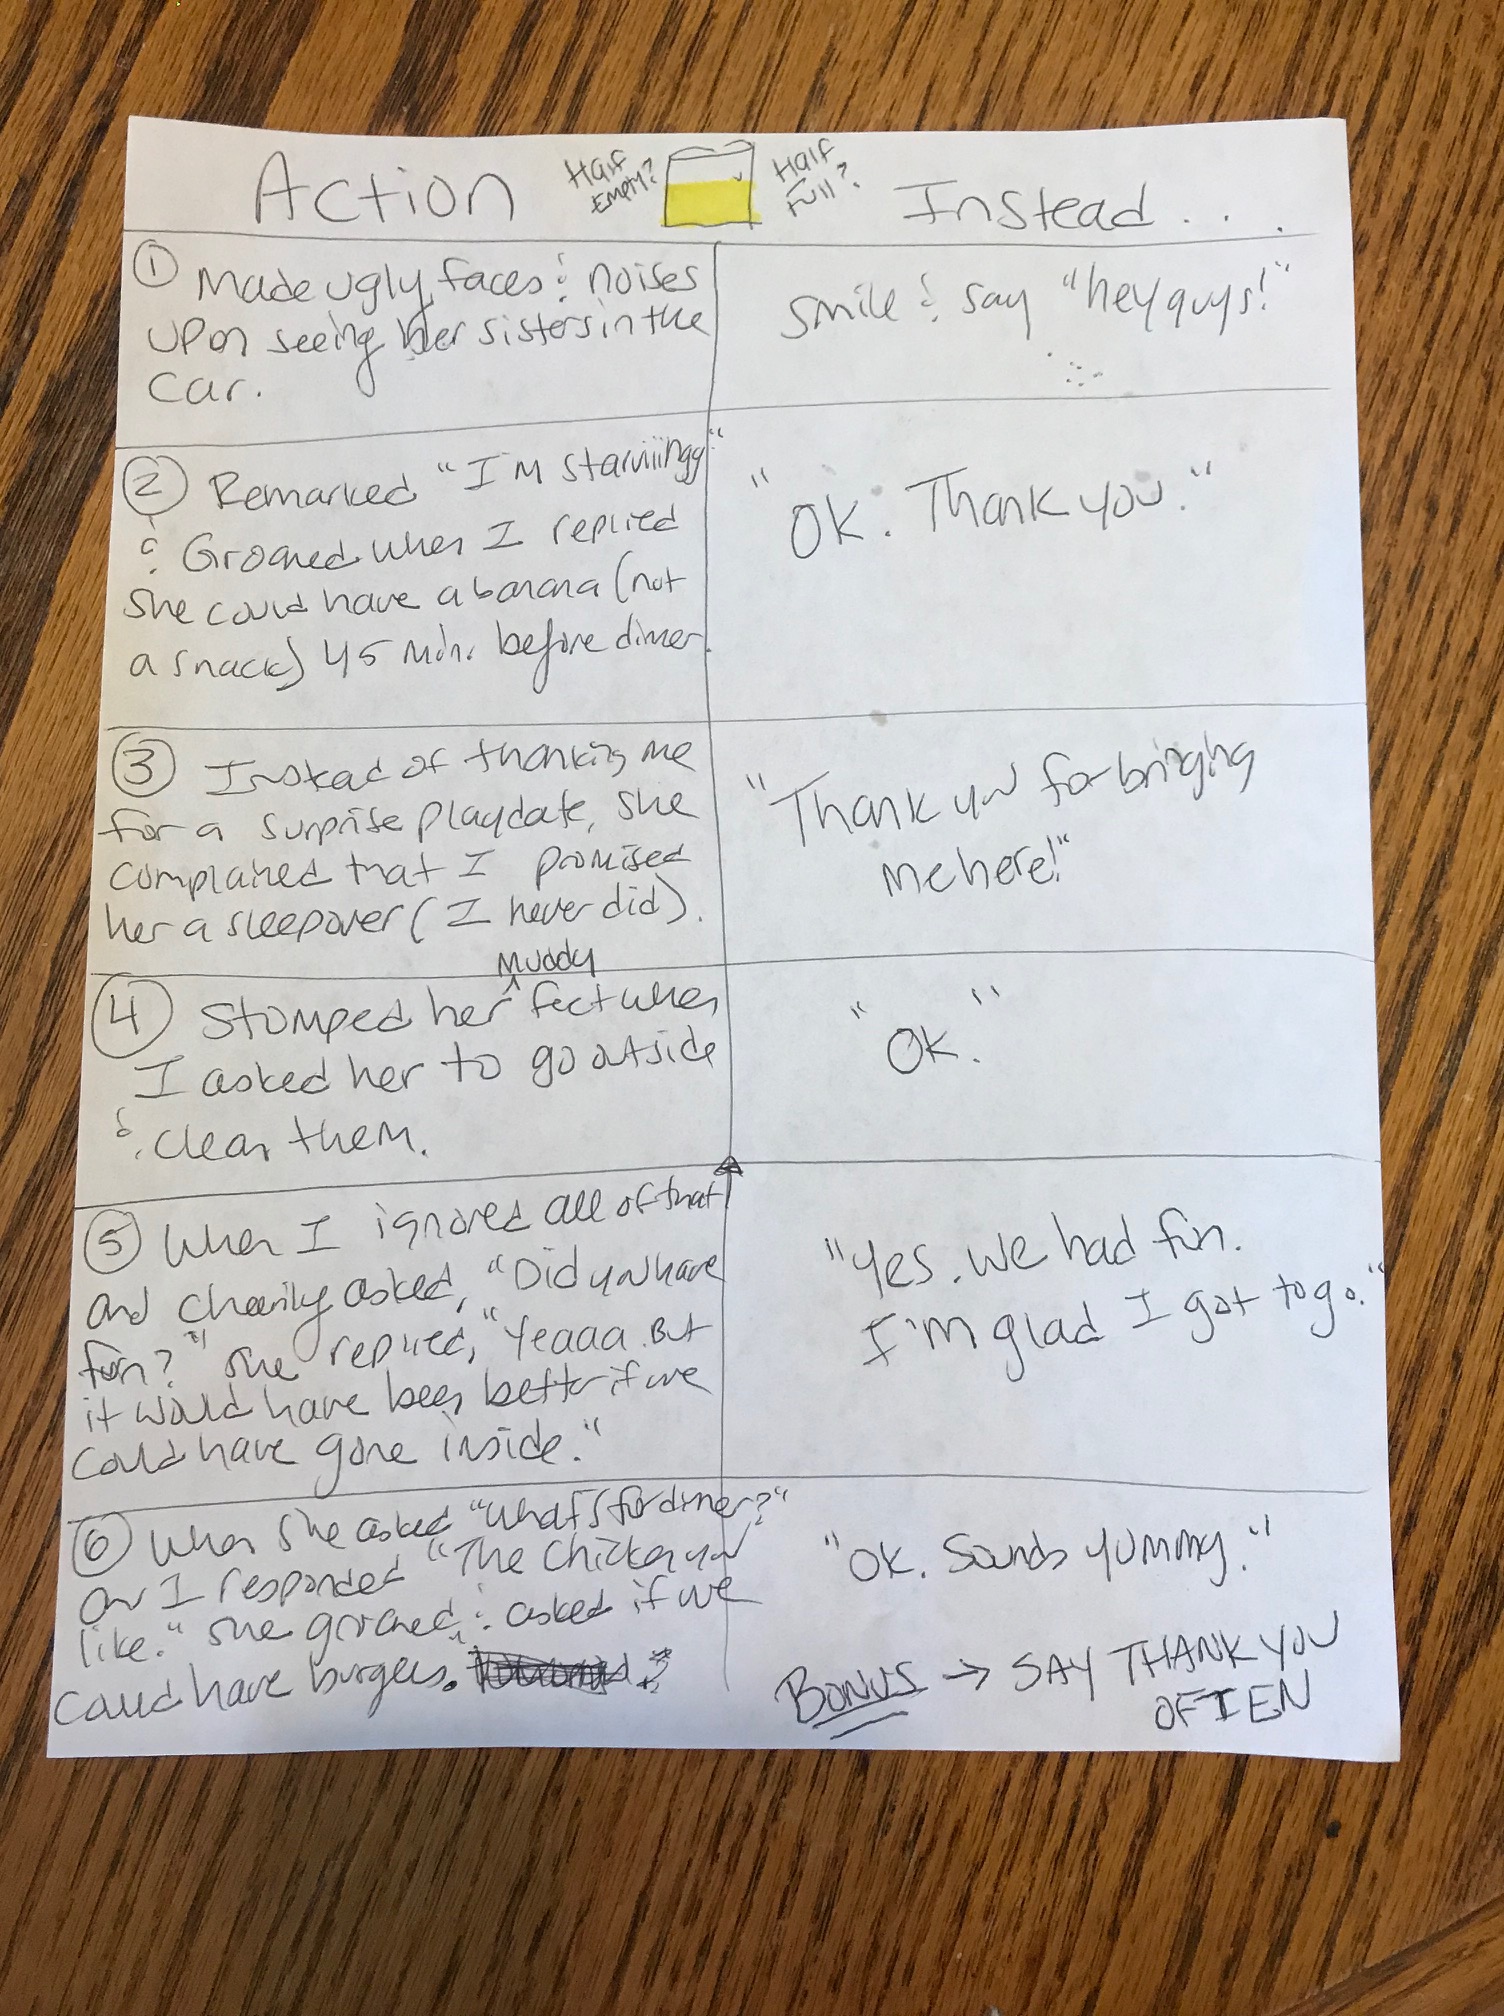 Action
Half
Empty?
Half
Full?
Instead...
① Made ugly faces & noises
upon seeing her sisters in the
car.
smile & say "hey guys!"
② Remarked "I'm starviiingg"
& Groaned when I replied
she could have a banana (not
a snack) 45 min. before dinner.
"OK. Thank you."
③ Instead of thanking me
for a surprise playdate, she
complained that I promised
her a sleepover (I never did).
"Thank you for bringing
me here!"
muddy
④ Stomped her ^ feet when
I asked her to go outside
& clean them.
"OK."
⑤ When I ignored all of that
and cheerily asked, "Did you have
fun?" she replied, "Yeaaa. But
it would have been better if we
could have gone inside."
"Yes. We had fun.
I'm glad I got to go."
⑥ When she asked "What's for dinner?"
and I responded "The chicken you
like." she groaned & asked if we
could have burgers.
"OK. Sounds yummy."
Bonus → SAY THANK YOU
OFTEN